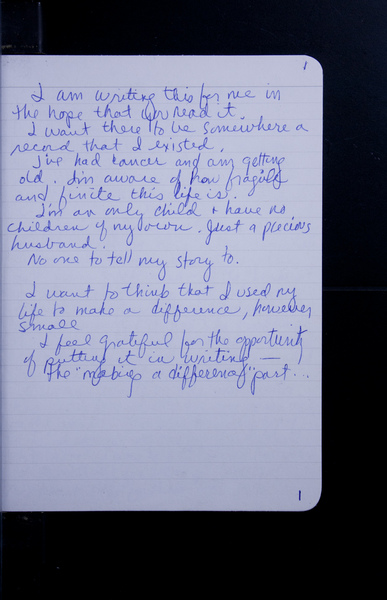 1
I am writing this for me in
the hope that you read it.
I want there to be somewhere a
record that I existed.
I've had cancer and am getting
old. I'm aware of how fragile
and finite this life is.
I'm an only child + have no
children of my own. Just a precious
husband.
No one to tell my story to.
I want to think that I used my
life to make a difference, however
small
I feel grateful for the opportunity
of putting it in writing —
The "making a difference" part...
1